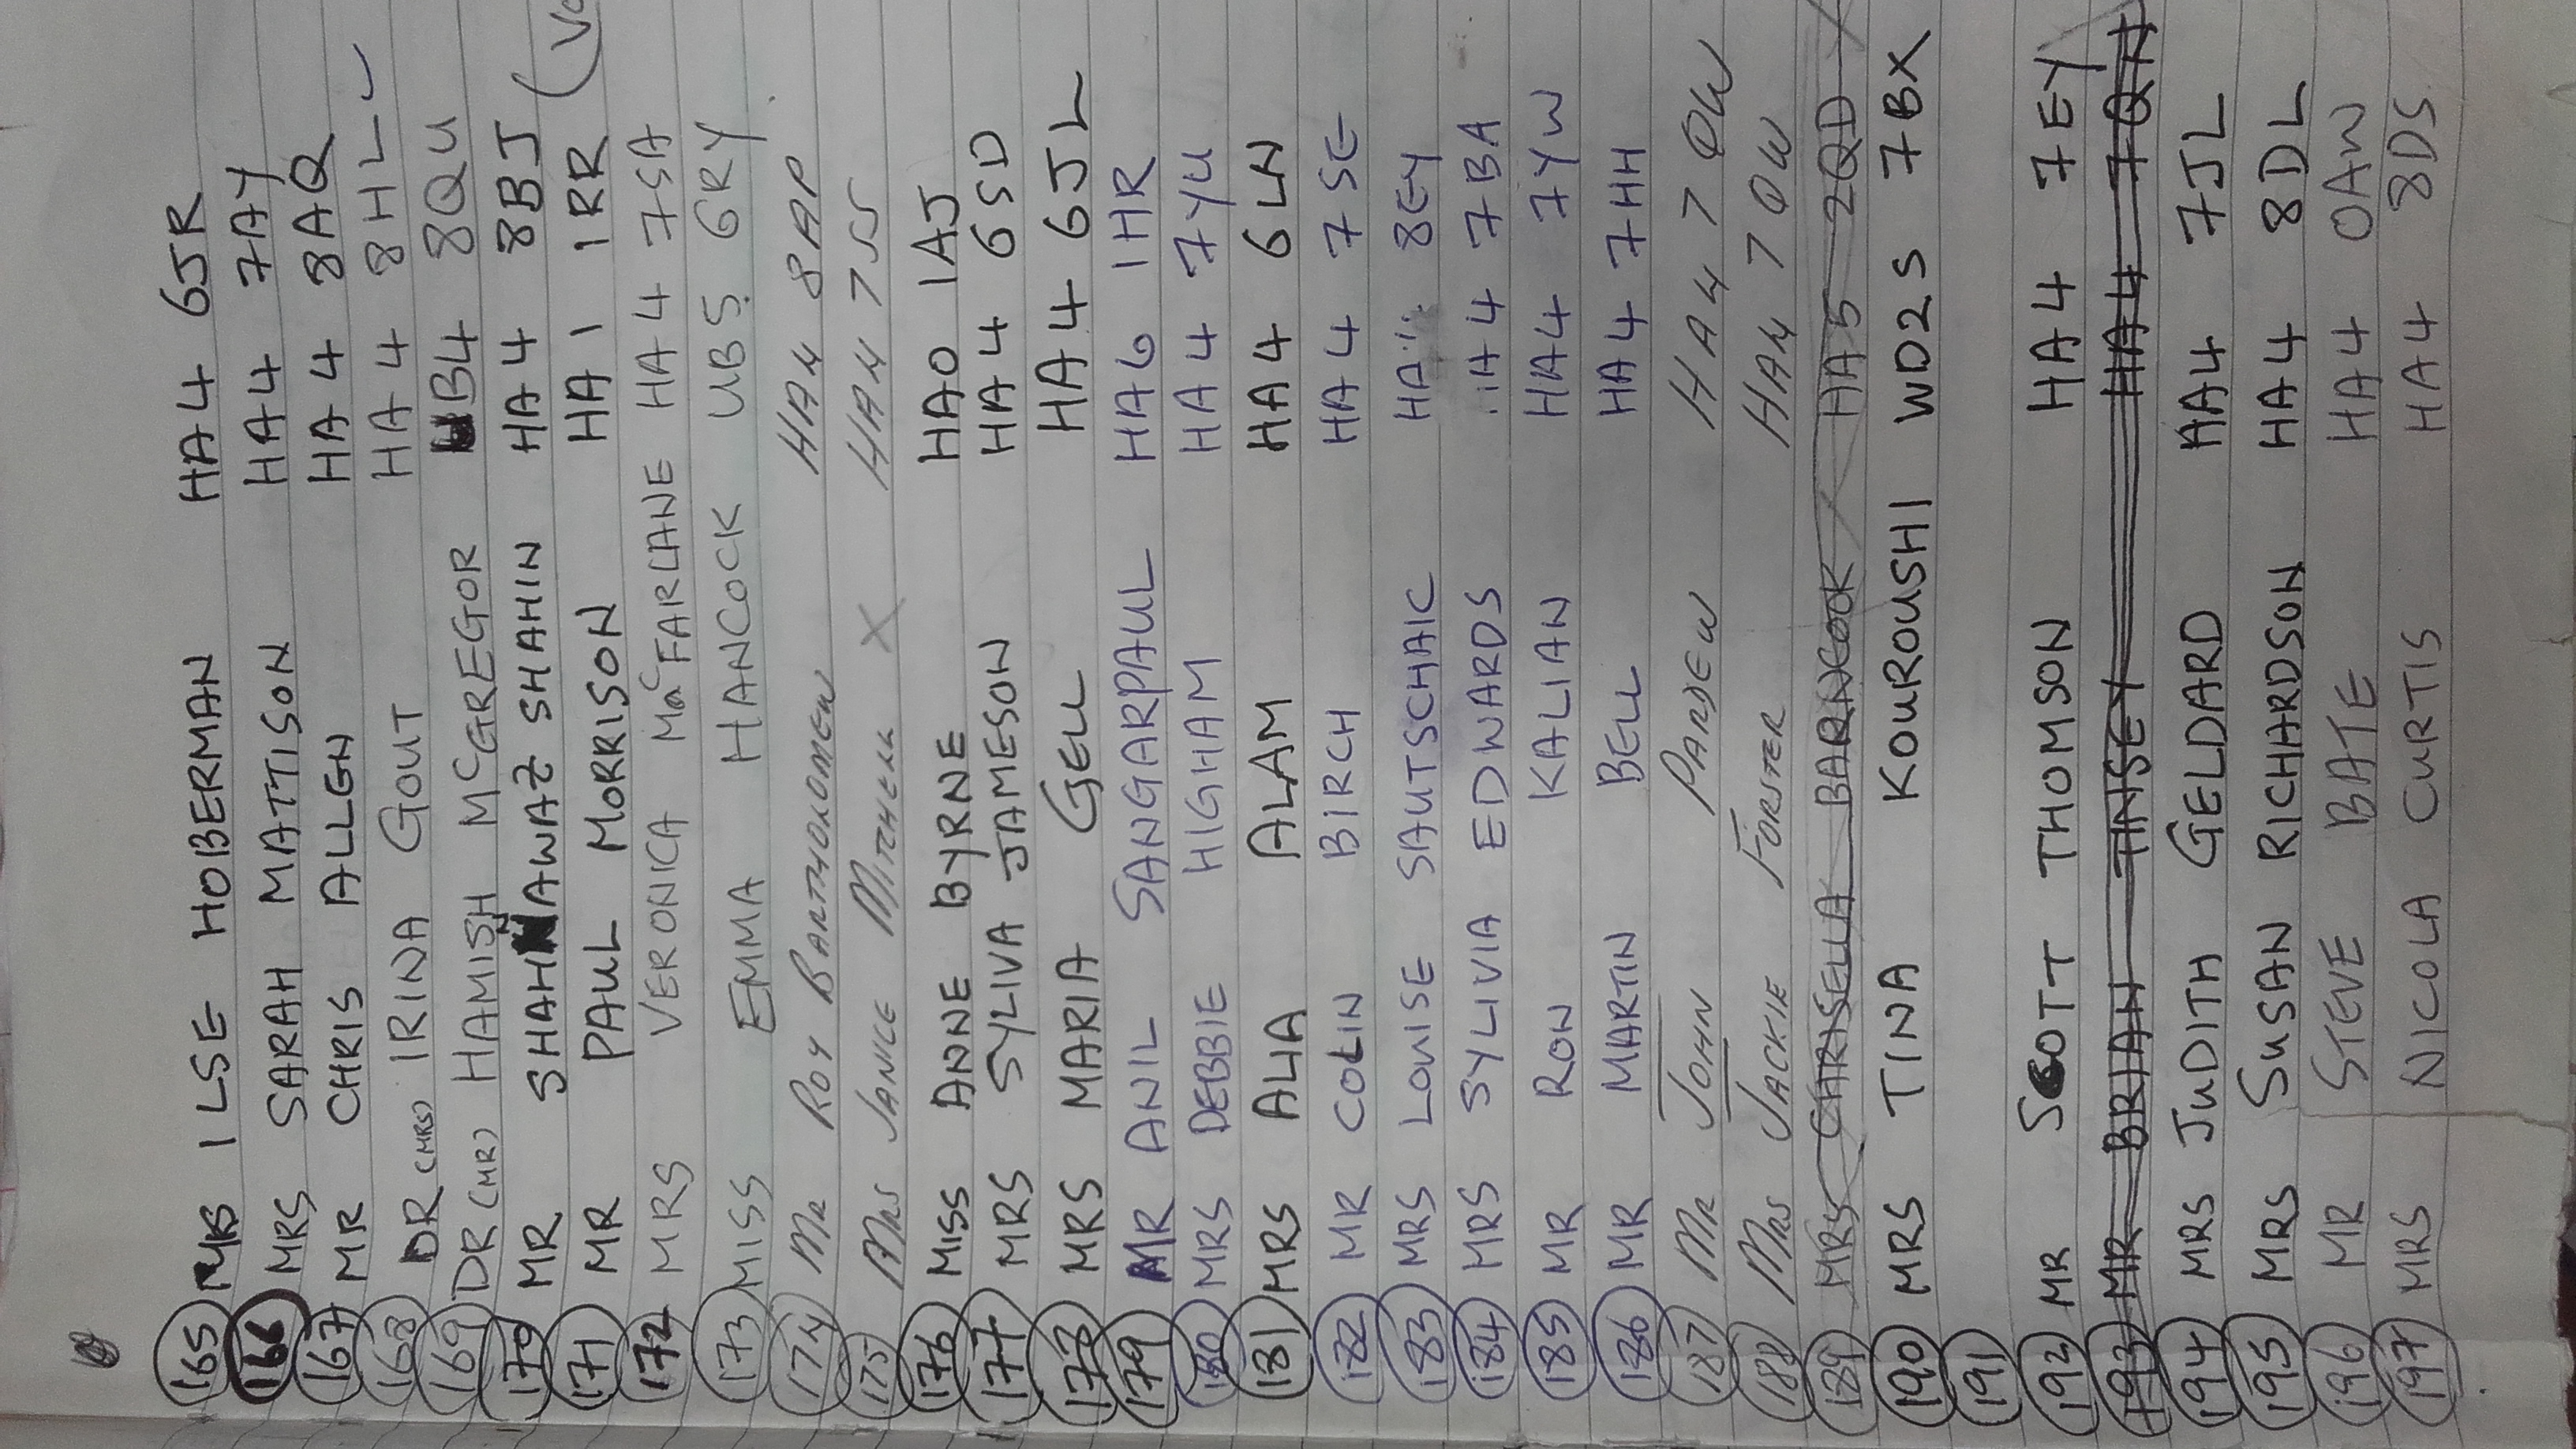 165 MRS ILSE HOBERMAN HA4 6JR
166 MRS SARAH MATTISON HA4 7AY
167 MR CHRIS ALLEN HA4 8AQ
168 DR (MRS) IRINA GOUT HA4 8HL ✓
169 DR (MR) HAMISH McGREGOR UB4 8QU
170 MR SHAHNAWAZ SHAHIN HA4 8BJ
171 MR PAUL MORRISON HA1 1RR
172 MRS VERONICA MacFARLANE HA4 7SA
173 MISS EMMA HANCOCK UB5 6RY
174 MR ROY BARTHOLOMEW HA4 8AP
175 MRS JANICE MITCHELL X HA4 7SS
176 MISS ANNE BYRNE HA0 1AJ
177 MRS SYLIVA JAMESON HA4 6SD
178 MRS MARIA GELL HA4 6JL
179 MR ANIL SANGARPAUL HA6 1HR
180 MRS DEBBIE HIGHAM HA4 7YU
181 MRS ALIA ALAM HA4 6LN
182 MR COLIN BIRCH HA4 7SE
183 MRS LOUISE SAUTSCHAIC 8EY
184 MRS SYLIVIA EDWARDS HA4 7BA
185 MR RON KALIAN HA4 7YW
186 MR MARTIN BELL HA4 7HH
187 MR JOHN PARDEW HA4 7QW
188 MRS JACKIE FORSTER HA4 7QW
189 MRS CHRISELLA BARNCOOK HA5 2QD
190 MRS TINA KOUROUSHI WD25 7BX
191
192 MR SCOTT THOMSON HA4 7EY
193 MR BRIAN TINSEY HA4 7QN
194 MRS JUDITH GELDARD HA4 7JL
195 MRS SUSAN RICHARDSON HA4 8DL
196 MR STEVE BATE HA4 0AW
197 MRS NICOLA CURTIS HA4 8DS